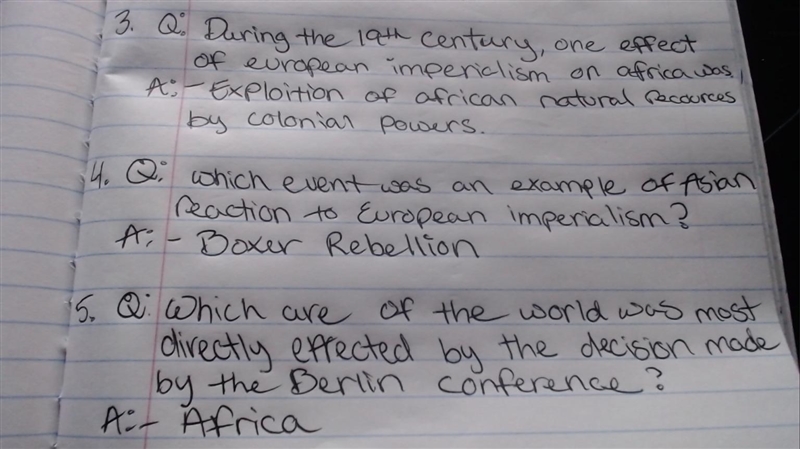 3. Q: During the 19th century, one effect
of european imperialism on africa was,
A:- Exploition of african natural recources
by colonial powers.
4. Q: which event was an example of Asian
reaction to European imperialism?
A:- Boxer Rebellion
5. Q: Which are of the world was most
directly effected by the decision made
by the Berlin conference?
A:- Africa